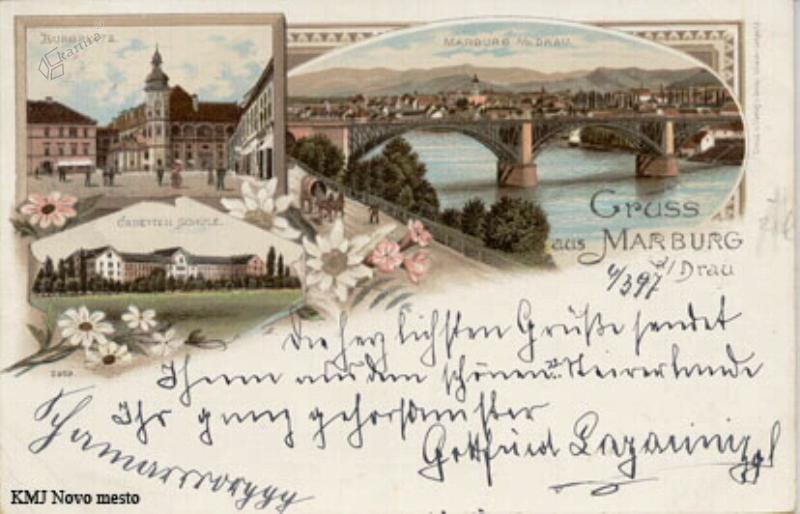 BURGPLATZ.
kamra
MARBURG A/D. DRAU.
CADETTEN SCHULE.
Gruss
aus MARBURG
a/Drau
4/3 97
Die herzlichsten Grüße sendet
Ihnen aus dem schönen Steirerlande
Ihr ganz gehorsamster
Gottfried
2959
KMJ Novo mesto